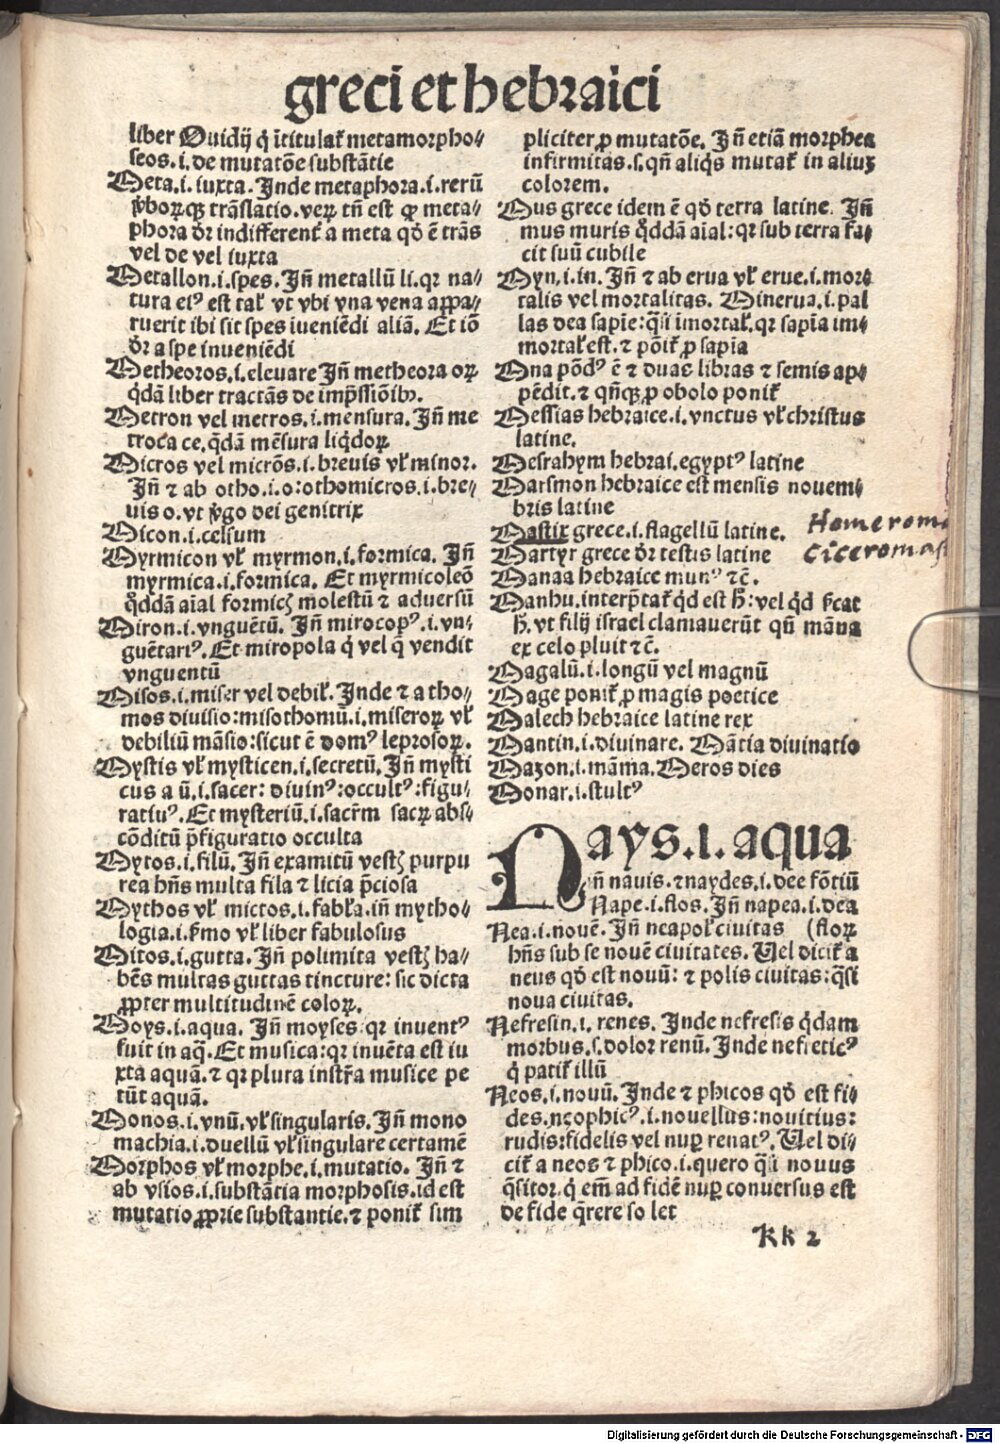 greci et hebraici
liber Ouidij q̇ ītitulat᷑ metamorpho⸗
seos.i.de mutatōe substātie
Meta.i.iuxta.Inde metaphora.i.rerū
v̓boꝝqꝫ trāslatio.veꝝ tñ est ꝙ meta⸗
phora dr̄ indifferent᷑ a meta qd̓ ē trās
vel de vel iuxta
Metallon.i.spes. Iñ metallū li.qꝛ na⸗
tura eiꝰ est tal᷑ vt vbi vna vena aꝓpa⸗
ruerit ibi sit spes iueniēdi aliā. Et iō
dr̄ a spe inueniēdi
Metheoros.i.eleuare Iñ metheora oꝝ
q̇dā liber tractās de imp̄ssiōibꝰ.
Metron vel metros.i.mensura. Iñ me
troca ce.q̄dā mēsura liq̇doꝝ
Micros vel micrōs.i.breuis vl᷑ minor.
Iñ ⁊ ab otho.i.o:othomicros.i.bre⸗
uis o.vt v̓go dei genitrix
Micon.i.celsum
Myrmicon vl᷑ myrmon.i.formica. Iñ
myrmica.i.formica. Et myrmicoleō
q̊ddā aīal formicꝫ molestū ⁊ aduersū
Miron.i.vnguētū. Iñ mirocopꝰ.i.vn⸗
guētariꝰ. Et miropola q̇ vel q̄ vendit
vnguentū
Misos.i.miser vel debil᷑. Inde ⁊ a tho⸗
mos diuisio:misothomū.i.miseroꝝ vl᷑
debiliū māsio:sicut ē domꝰ leprosoꝝ.
Mystis vl᷑ mysticen.i.secretū. Iñ mysti
cus a ū.i.sacer: diuinꝰ:occultꝰ:figu⸗
ratiuꝰ. Et mysteriū.i.sacr̄m sacꝝ abs⸗
cōditū p̄figuratio occulta
Mytos.i.filū. Iñ examitū vestꝫ purpu
rea hn̄s multa fila ⁊ licia p̄ciosa
Mythos vl᷑ mictos.i.fabl᷑a.iñ mytho⸗
logia.i.ẜmo vl᷑ liber fabulosus
Mitos.i.gutta. Iñ polimita vestꝫ ha⸗
bēs multas guttas tincture: sic dicta
ꝓpter multitudinē coloꝝ.
Moys.i.aqua. Iñ moyses:qꝛ inuentꝰ
fuit in aq̄. Et musica:qꝛ inuēta est iu
xta aquā.⁊ qꝛ plura instr̄a musice pe
tūt aquā.
Monos.i.vnū.vl᷑ singularis. Iñ mono
machia.i.duellū vl᷑ singulare certamē
Morphos vl᷑ morphe.i.mutatio. Iñ ⁊
ab vsios.i.substātia morphosis.id est
mutatio ꝓprie substantie.⁊ ponit᷑ sim
pliciter ꝓ mutatōe. Iñ etiā morphea
infirmitas.s.qñ aliq̇s mutat᷑ in aliuꝫ
colorem.
Mus grece idem ē qd̓ terra latine. Iñ
mus muris q̊ddā aīal:qꝛ sub terra fa⸗
cit suū cubile
Myn.i.in. Iñ ⁊ ab erua vl᷑ erue.i.mor⸗
talis vel mortalitas. Minerua.i.pal
las dea sapīe:q̄si īmortal᷑.qꝛ sapīa im⸗
mortal᷑ est.⁊ pōit᷑ ꝓ sapīa
Mna pōdꝰ ē ⁊ duac libras ⁊ semis ap⸗
pēdit.⁊ qñqꝫ ꝓ obolo ponit᷑
Messias hebraice.i.vnctus vl᷑ christus
latine.
Mesrahym hebrai.egyptꝰ latine
Marsmon hebraice est mensis nouem⸗
bris latine
Mastix grece.i.flagellū latine.
Martyr grece dr̄ testis latine
Manaa hebraice munꝰ ⁊c̄.
Manhu.interp̄tat᷑ q̇d est h̄:vel q̇d ẜcat
h̄.vt filij israel clamauerūt qū māna
ex celo pluit ⁊c̄.
Magalū.i.longū vel magnū
Mage ponit᷑ ꝓ magis poetice
Malech hebraice latine rex
Mantin.i.diuinare. Mātia diuinatio
Mazon.i.māma. Meros dies
Monar.i.stultꝰ
Homeroma
Ciceromas
Nays.i.aqua
iñ nauis.⁊naydes.i.dee fōtiū
Nape.i.flos. Iñ napea.i.dea
Nea.i.nouē. Iñ neapol᷑ ciuitas (floꝝ
hn̄s sub se nouē ciuitates. Uel dicit᷑ a
neus qd̓ est nouū: ⁊ polis ciuitas:q̄si
noua ciuitas.
Nefresin.i. renes. Inde nefresis q̇dam
morbus.s.dolor renū. Inde nefreticꝰ
q̇ patit᷑ illū
Neos.i.nouū. Inde ⁊ phicos qd̓ est fi⸗
des.neophicꝰ.i.nouellus:nouitius:
rudis:fidelis vel nuꝑ renatꝰ. Uel di⸗
cit᷑ a neos ⁊ phico.i.quero q̄si nouus
q̄sitor.q̇ em̄ ad fidē nuꝑ conuersus est
de fide q̄rere so let
Kk 2
Digitalisierung gefördert durch die Deutsche Forschungsgemeinschaft - DFG